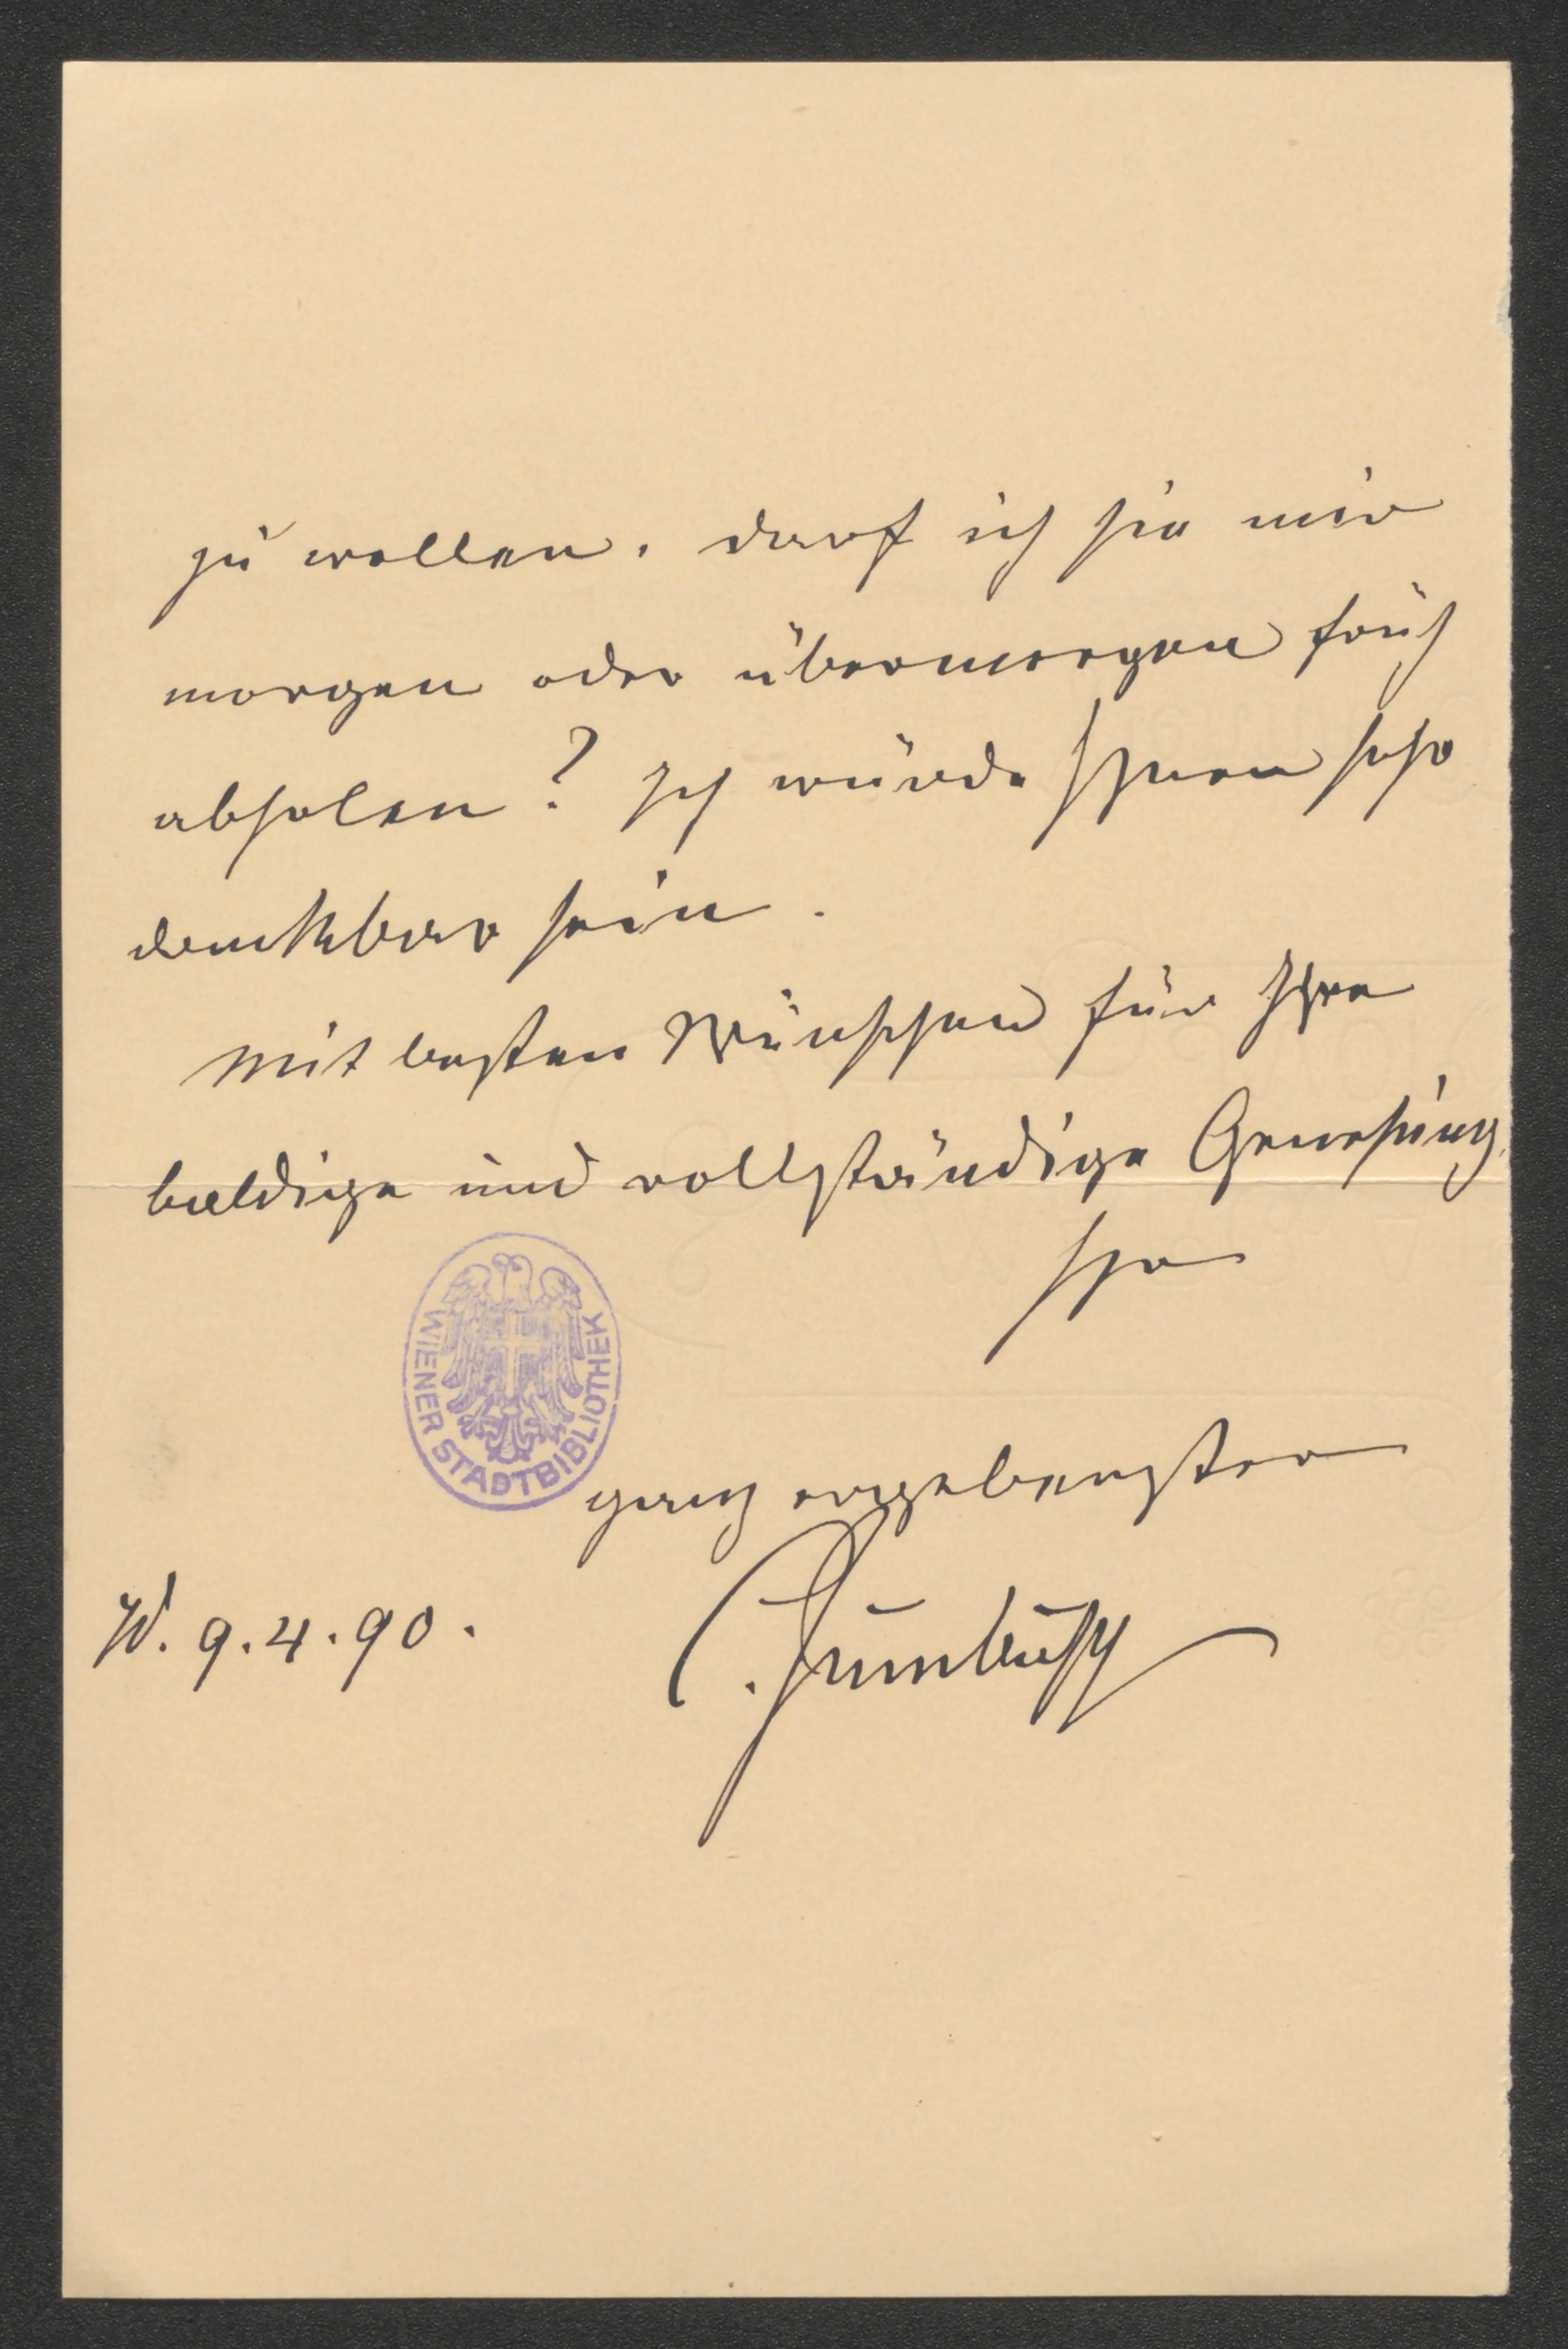 zu wollen. darf ich sie mir
morgen oder übermorgen früh
abholen? Ich würde Ihnen sehr
dankbar sein.
Mit besten Wünschen für Ihre
baldige und vollständige Genesung,
Ihr
WIENER STADTBIBLIOTHEK
ganz ergebenster
W. 9.4.90.
C. Zumbusch